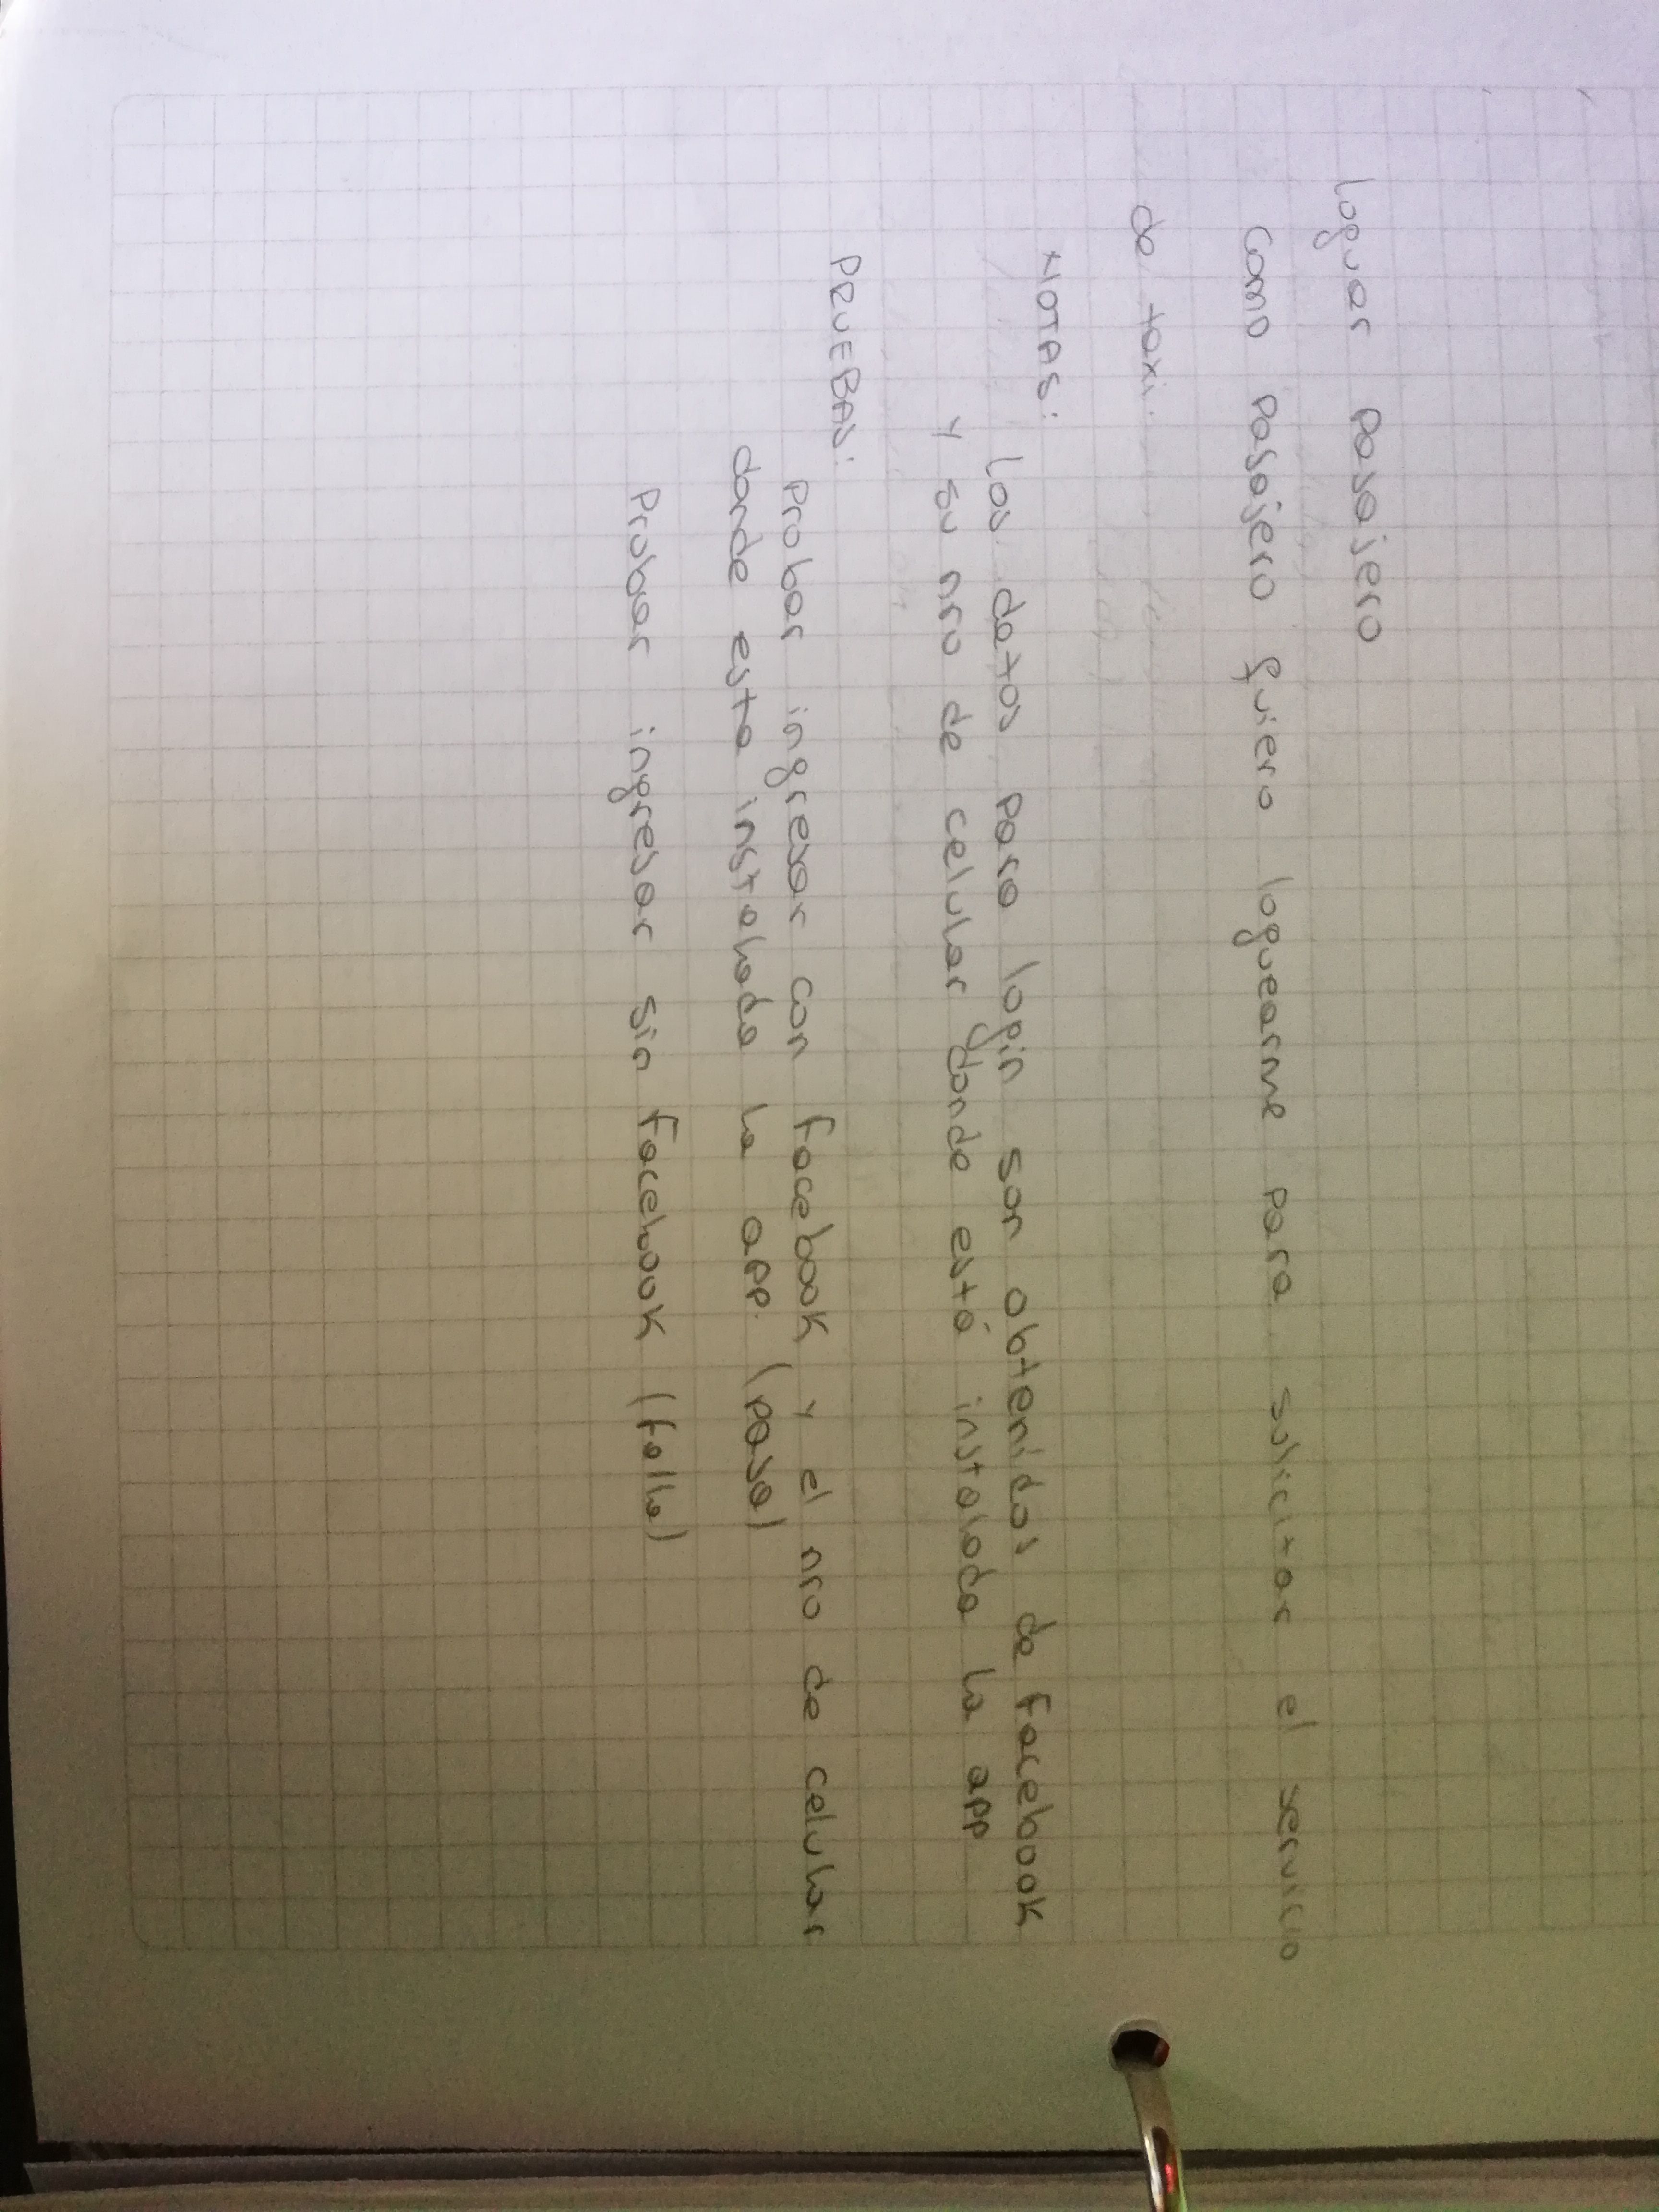 Loguar pasajero
Como pasajero quiero loguearme para solicitar el servicio
de taxi.
NOTAS:
Los datos para login son obtenidos de Facebook
y su nro de celular donde está instalada la app
PRUEBAS:
Probar ingresar con Facebook y el nro de celular
donde esta instalada la app. (pasa)
Probar ingresar sin Facebook (falla)